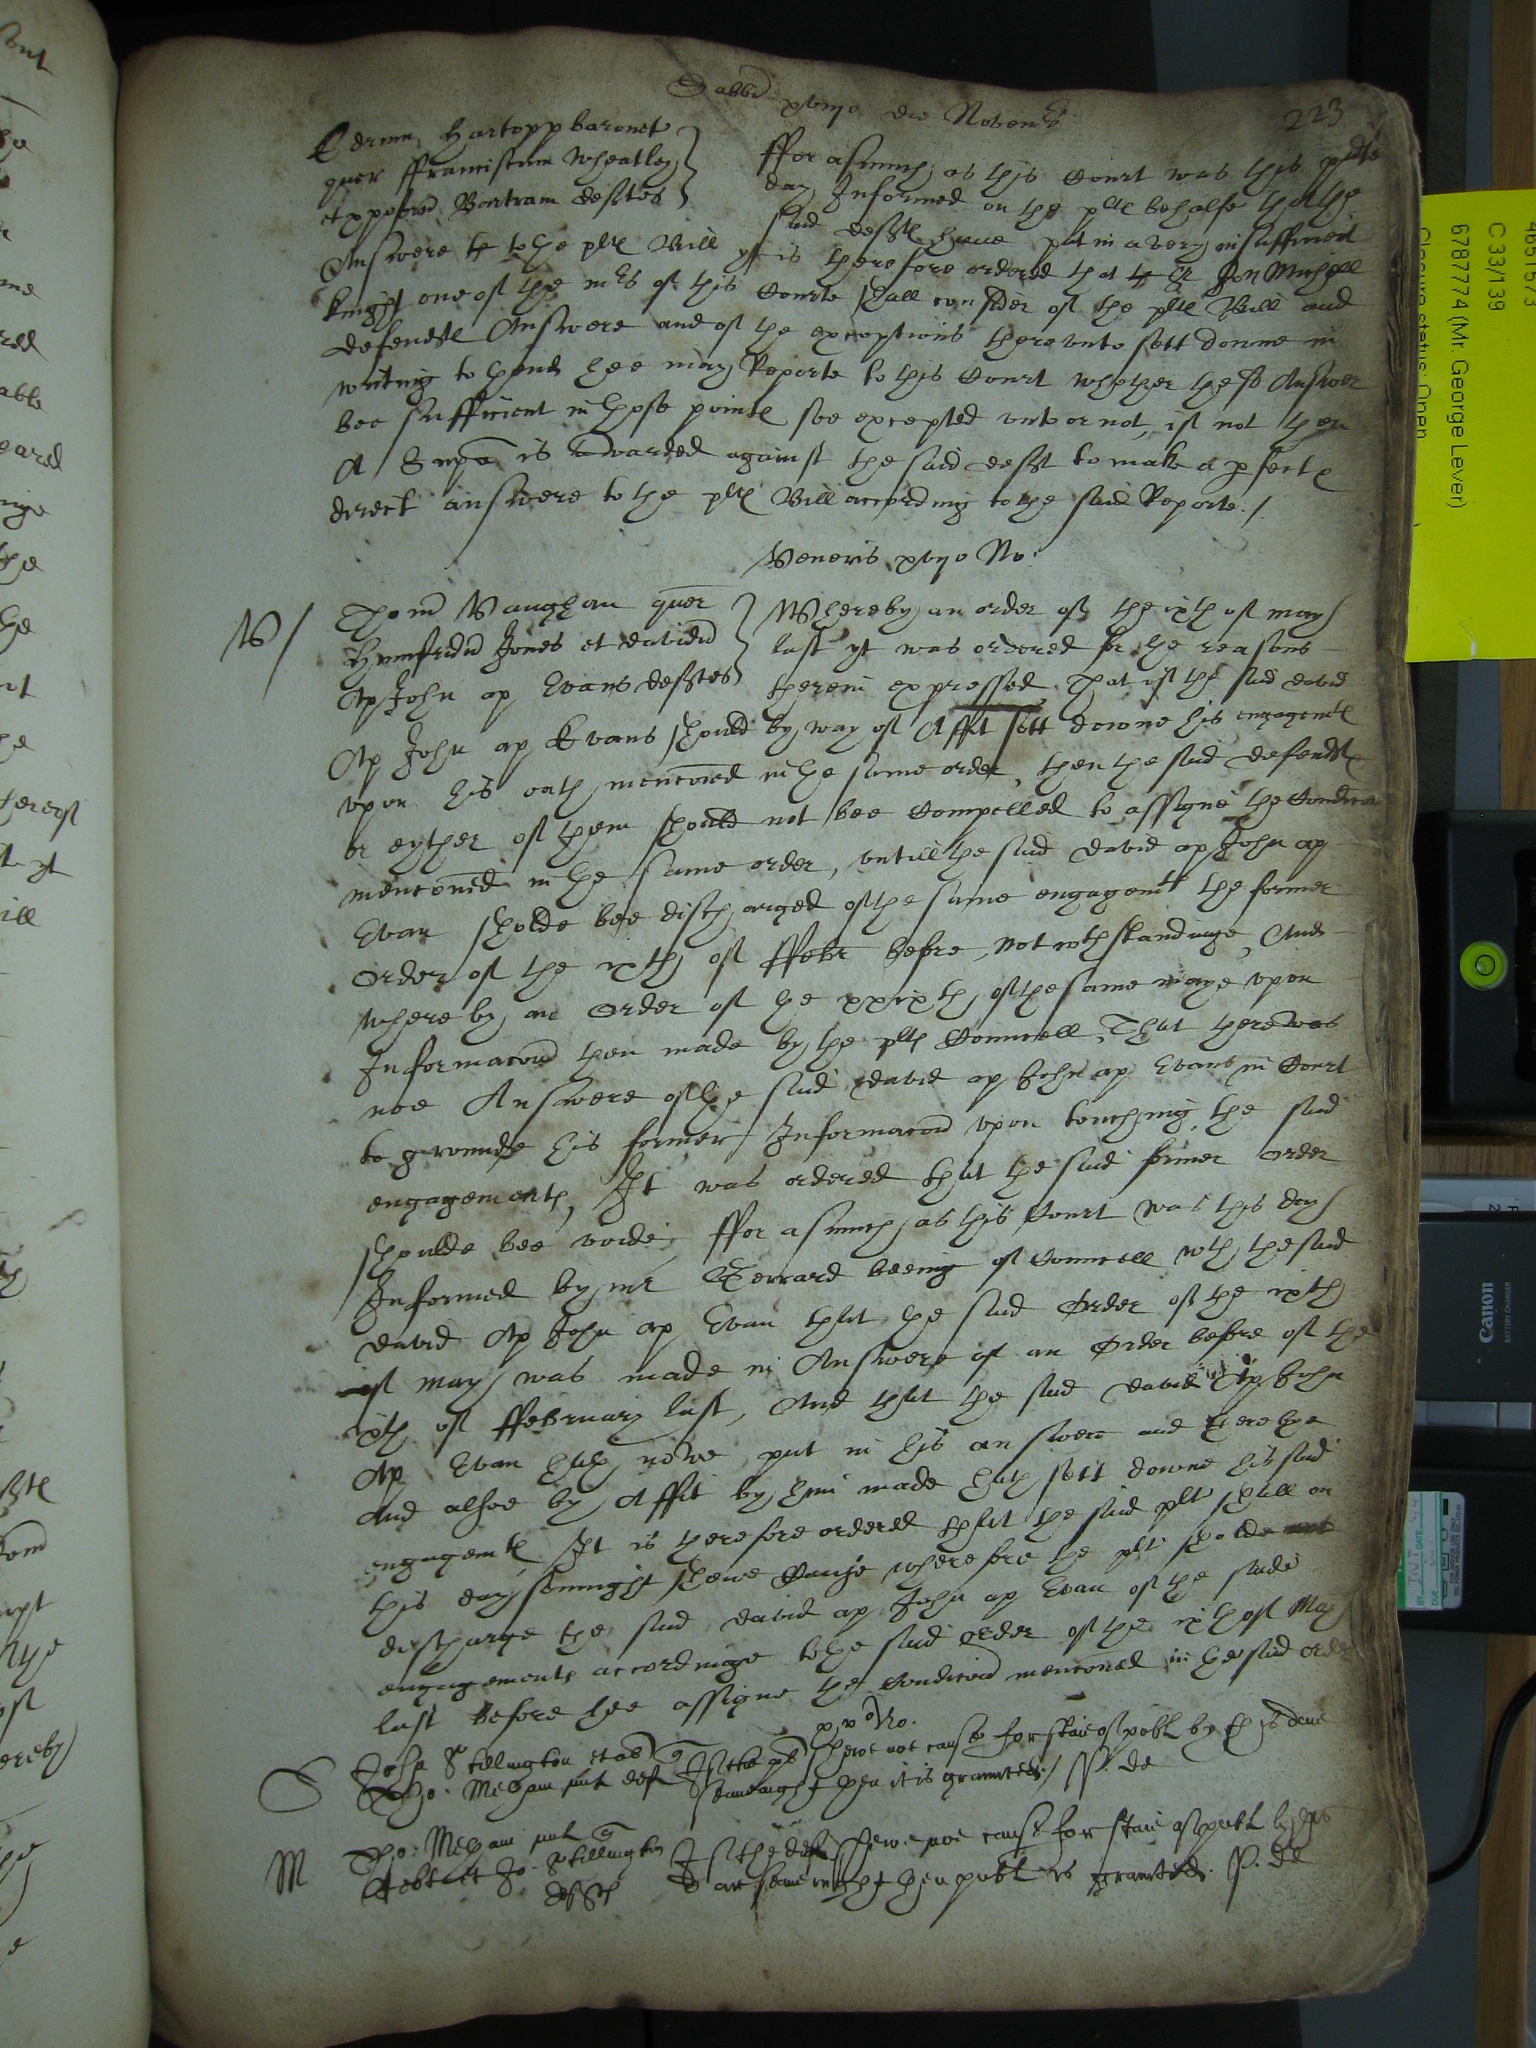 Sabbti xvijo die Novembr
223
Edrum Hartopp baronet
quer ffranciscum Wheatley
et xpoferu Bartram defftes
fforasmuch as this Court was this pnte
day Informed on the plts behalfe that the
said defftes haue put in a very insufficient
Answere to the plts Bill yt is therefore ordered that Sr Jon Michell
knight one of the mrs of this Courte shall consider of the plts Bill and
defendtes Answere and of the exceptions therevnto sett downe in
writing to thend hee may Reporte to this Court whether the sd Answer
bee sufficient in those pointes soe excepted vnto or not, if not then
A Supa is awarded against the said defft to make a pfecte
direct answere to the plts Bill according to the said Reporte./
Veneris xvijo No:
W/
Thoma Vaughan quer
Humfridu Jones et davidu
Ap John ap Evans defftes
Whereby an order of the ixth of may
last yt was ordered for the reasons
therein expressed That if the said david
Ap John ap Evans should by way of Affit sett downe his engagemts
vpon his oath mencioned in the same order, then the said defendts
or eyther of them should not bee Compelled to assigne the Condicon
mencioned in the same order, vntill the said david ap John ap
Evan sholde bee discharged of the same engagemts the former
order of the ixth of ffebr before, Notwthstandinge, And
whereby an Order of the xxixth of the same maye vpon
Informacon then made by the plts Councell, That there was
noe Answere of the said david ap John ap Evans in Court
to grounde his former Informacon vpon touching the said
engagements, It was ordered that the said former order
shoulde bee voide, fforasmuch as this Court was this day
Informed by mr Gerrard beeing of Councell wth the said
david Ap John ap Evan that the said Order of the ixth
of may was made in Answere of an Order before of the
ixth of ffebruary last, And that the said david Ap John
Ap Evan hath nowe put in his answere and thereby
And alsoe by Affit by him made hath sett downe his said
engagemts It is therefore ordered that the said plt shall on
this day sennight shewe Cause wherefore the plt sholde not
discharge the said david ap John ap Evan of the saide
engagements accordinge to the said order of the ixth of May
last before hee assigne the Condicon mencioned in the said order
xvo No.
S
John Stillington et al q
Tho: Metham mil def
If the plt shewe noe cause for staie of publ by this daie
sennnight then it is graunted./ P. de
M
Tho: Metham mil q
et Jo: Stillington
defftes
If the defts shewe noe cause for staie of publ by this
daie sennight then publ is graunted. P. de
4651573
C 33/139
6787774 (Mr. George Lever)
Closure status: Open
Canon
BATTERY CHARGER